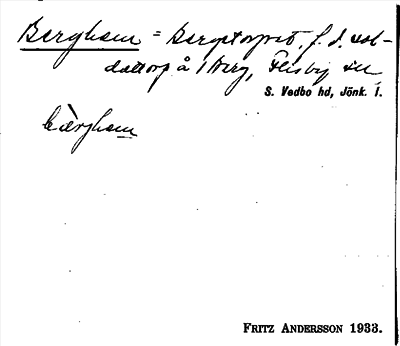 Bergham = Bergstorpet, f. d. sol-
dattorp å 1 Berg, Flisby sn
S. Vedbo hd, Jönk. l.
bærgham
FRITZ ANDERSSON 1933.